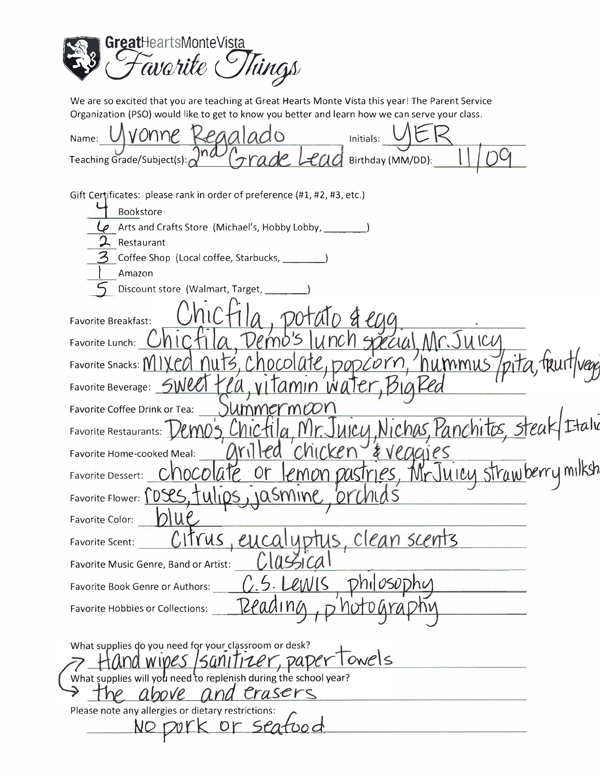 GreatHeartsMonteVista
Favorite Things
We are so excited that you are teaching at Great Hearts Monte Vista this year! The Parent Service
Organization (PSO) would like to get to know you better and learn how we can serve your class.
Name: Yvonne Regalado Initials: YER
Teaching Grade/Subject(s): 2nd Grade Lead Birthday (MM/DD): 11/09
Gift Certificates: please rank in order of preference (#1, #2, #3, etc.)
4 Bookstore
6 Arts and Crafts Store (Michael's, Hobby Lobby, ______)
2 Restaurant
3 Coffee Shop (Local coffee, Starbucks, ______)
1 Amazon
5 Discount store (Walmart, Target, ______)
Favorite Breakfast: Chicfila, potato & egg
Favorite Lunch: Chicfila, Demo's lunch special, Mr. Juicy
Favorite Snacks: Mixed nuts, chocolate, popcorn, hummus/pita, fruit/vegg
Favorite Beverage: sweet tea, vitamin water, Big Red
Favorite Coffee Drink or Tea: Summermoon
Favorite Restaurants: Demo's, Chicfila, Mr. Juicy, Nichas, Panchitos, steak/Itali
Favorite Home-cooked Meal: grilled chicken & veggies
Favorite Dessert: chocolate or lemon pastries, Mr Juicy strawberry milksh
Favorite Flower: roses, tulips, jasmine, orchids
Favorite Color: blue
Favorite Scent: citrus, eucalyptus, clean scents
Favorite Music Genre, Band or Artist: Classical
Favorite Book Genre or Authors: C.S. Lewis, philosophy
Favorite Hobbies or Collections: Reading, photography
What supplies do you need for your classroom or desk?
Hand wipes/sanitizer, paper towels
What supplies will you need to replenish during the school year?
the above and erasers
Please note any allergies or dietary restrictions:
No pork or seafood